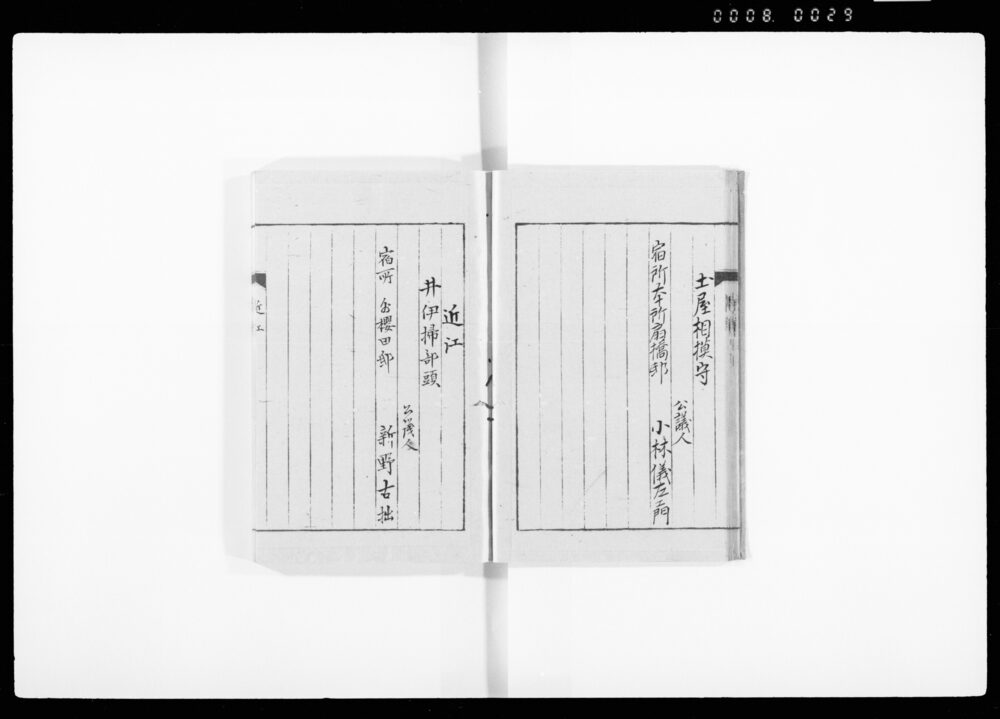 0008 0029
土屋相摸守
宿所本所扇橋邸
公議人
小林儀左エ門
近江
井伊掃部頭
宿所 外櫻田邸
公議人
新野古拙
近江